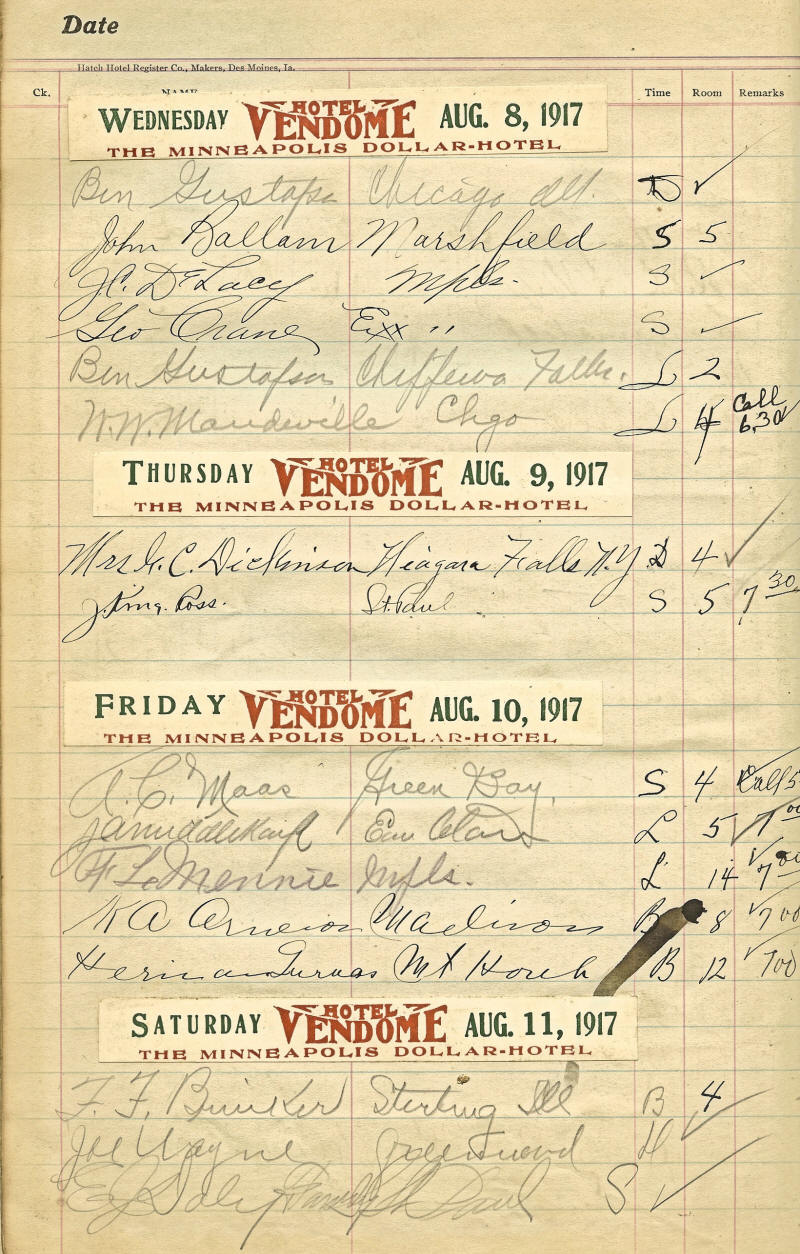 Date
Hatch Hotel Register Co., Makers, Des Moines, Ia.
Ck. NAME Time Room Remarks
WEDNESDAY HOTEL VENDOME AUG. 8, 1917
THE MINNEAPOLIS DOLLAR-HOTEL
Ben Gustafson Chicago D ✓
John Ballam Marshfield S 5
J.C. DeLacy Mpls. S ✓
Geo Crane Exx " S ✓
Ben Gustafson Chippewa Falls. L 2
W.W. Mandeville Chgo L 4 Call 6.30 ✓
THURSDAY HOTEL VENDOME AUG. 9, 1917
THE MINNEAPOLIS DOLLAR-HOTEL
Mrs. C. Dickinson Niagara Falls N.Y. D 4 ✓
J. King. Ross. St. Paul S 5 7 30
FRIDAY HOTEL VENDOME AUG. 10, 1917
THE MINNEAPOLIS DOLLAR-HOTEL
A.C. Maas Green Bay, S 4 Call 5
Eau Claire L 5 ✓ 7 00
F L Mennie Mpls. L 14 ✓ 7 00
Arneson Madison B 8 ✓ 7 00
Herman Mt Horeb B 12 ✓ 7 00
SATURDAY HOTEL VENDOME AUG. 11, 1917
THE MINNEAPOLIS DOLLAR-HOTEL
F. F. Bunker Sterling Ill B 4
Joe Wayne Greenwood H ✓
St Paul S ✓